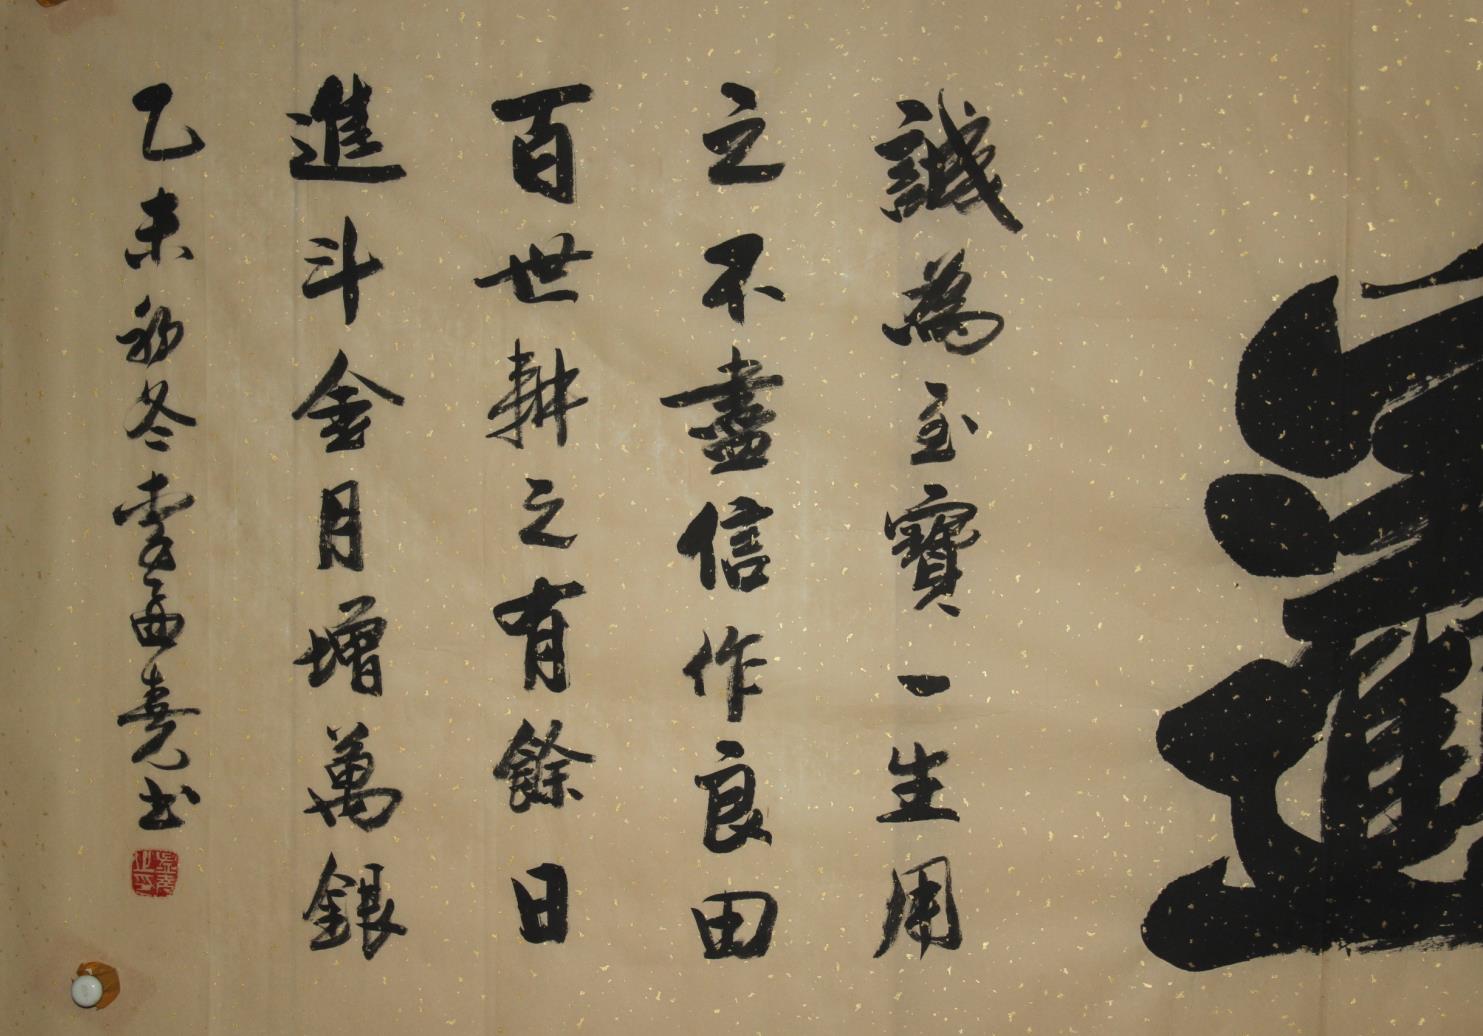 進
誠為至寶一生用
之不盡信作良田
百世耕之有餘日
進斗金月增萬銀
乙未初冬李孟堯書